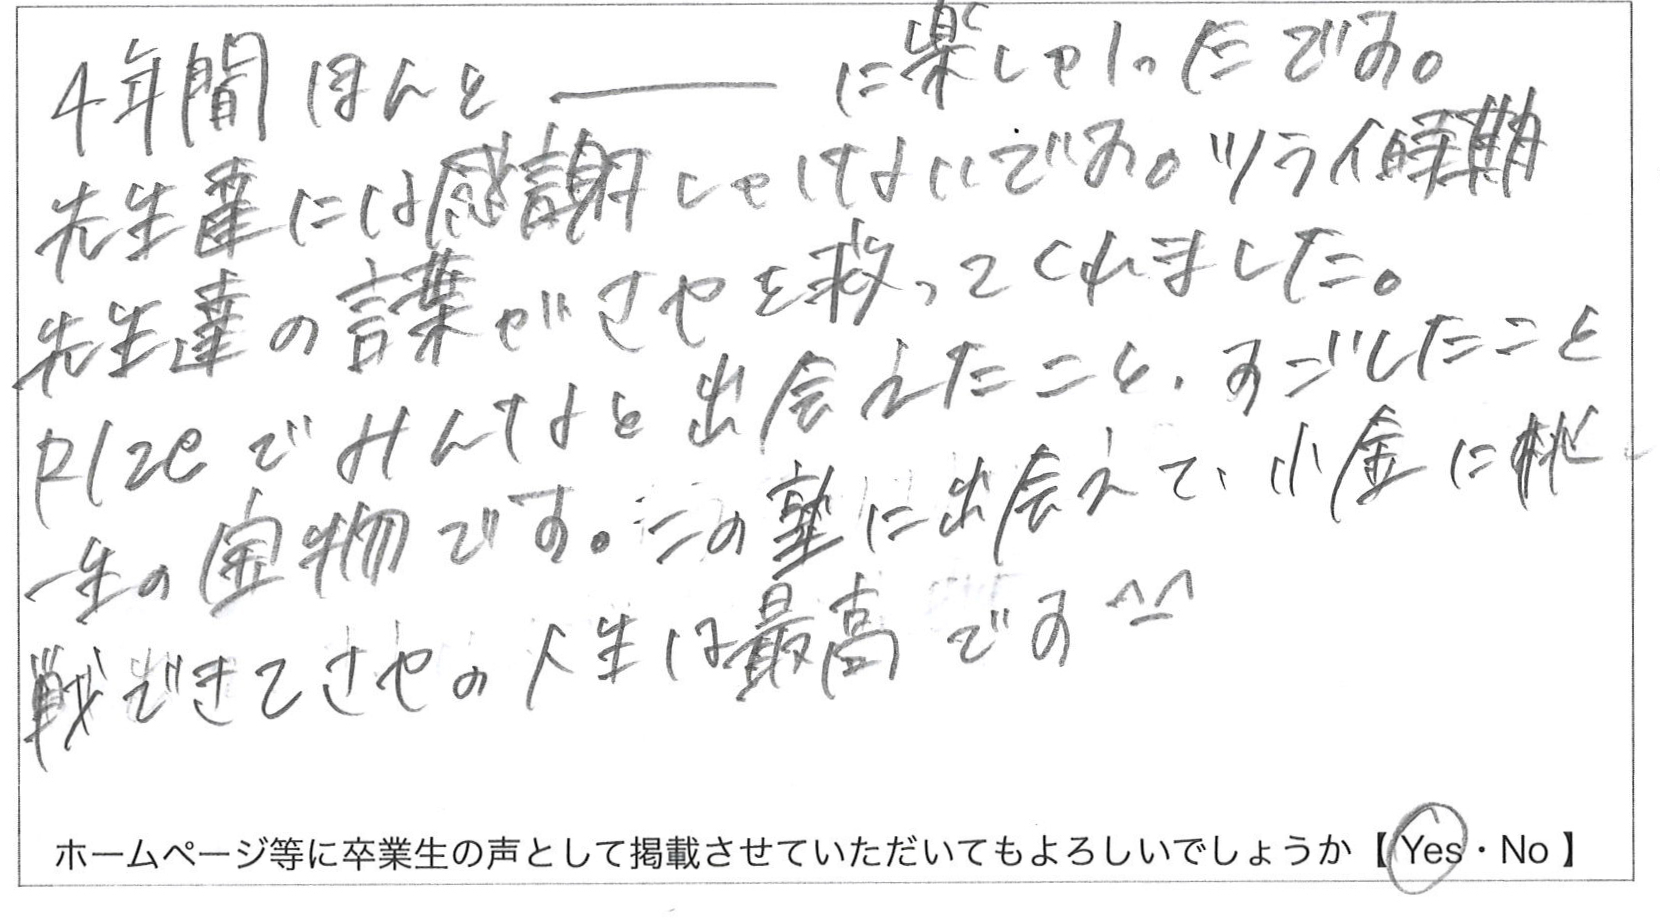 4年間ほんと――――に楽しかったです。
先生達には感謝しかないです。ツライ時期
先生達の言葉がさやを救ってくれました。
Rizeでみんなと出会えたこと、すごしたこと
一生の宝物です。この塾に出会えて、小金に挑
戦できてさやの人生は最高です^_^
ホームページ等に卒業生の声として掲載させていただいてもよろしいでしょうか【 Yes・No 】